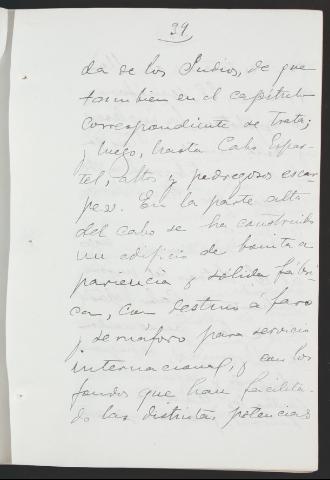 39
da de los Judios, de que
tambien en el capitulo
correspondiente se trata;
y luego, hasta Cabo Espar-
tel, altos y pedregosos escar-
pes. En la parte alta
del cabo se ha construido
un edificio de bonita a
pariencia y sólida fábri-
ca, con destino á faro
y semáforo para servicio
internacional, y con los
fondos que han facilita-
do las distintas potencias